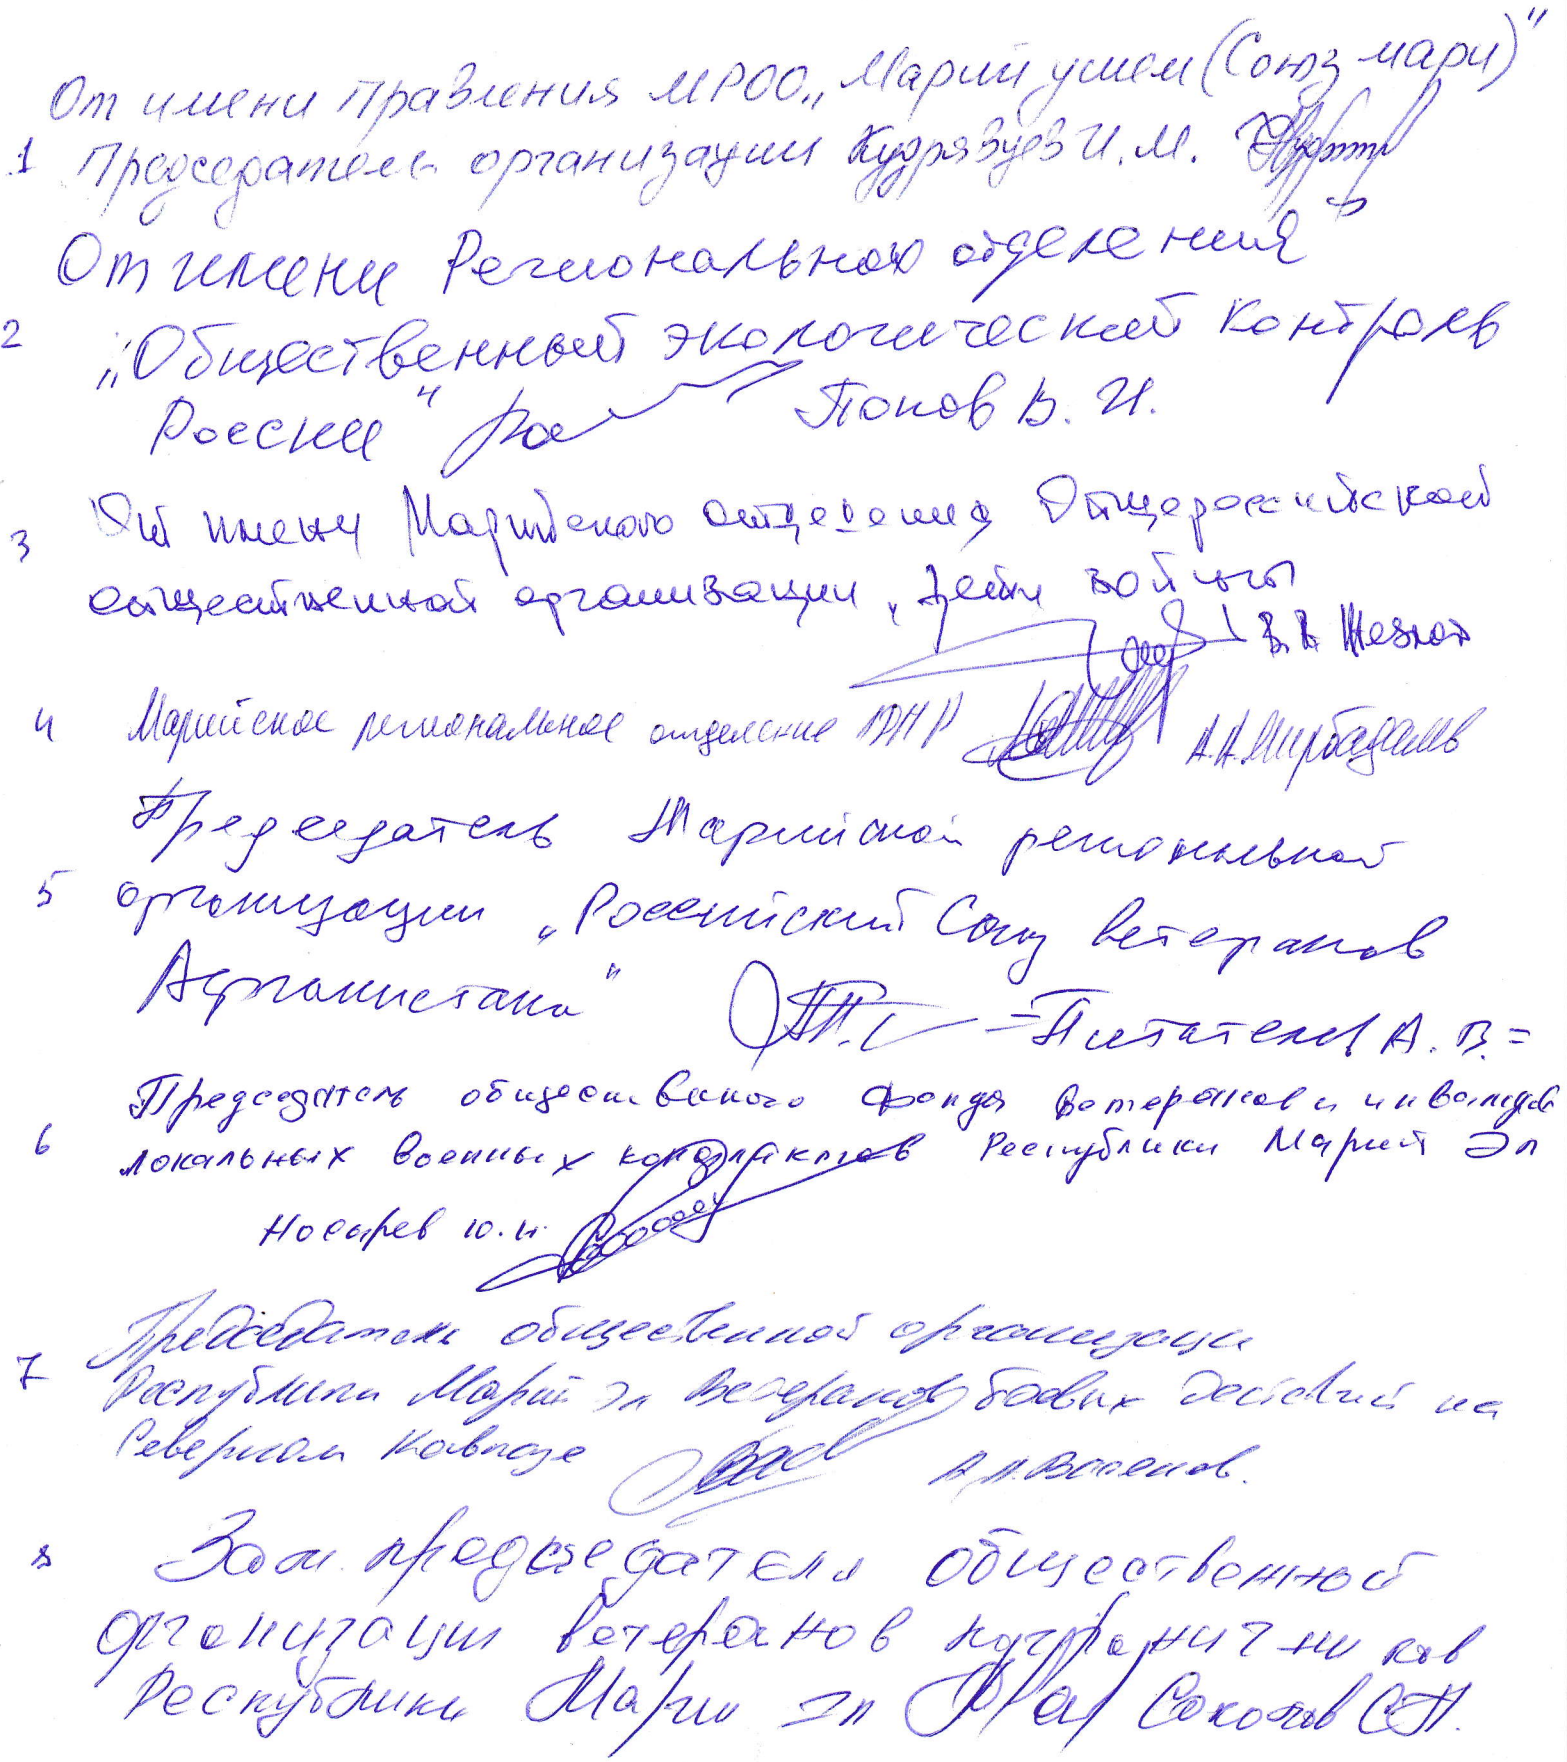 От имени Правления МРОО „Марий ушем (Союз мари)"
1 Председатель организации Кудрявцев И. М.
От имени Регионального отделения
2 „Общественный экологический контроль
России" Попов В. И.
3 От имени Марийского отделения Общероссийской
общественной организации „Дети войны
В. В.
4 Марийское региональное отделение А.А.
Председатель Марийской региональной
5 организации „Российский Союз ветеранов
Афганистана" =Питателев А. В.=
Председатель общественного фонда ветеранов и инвалидов
6 локальных военных конфликтов Республики Марий Эл
Носырев Ю. И.
Председатель общественной организации
7 Республики Марий Эл Ветеранов боевых действий на
Северном Кавказе
8 Зам. председателя общественной
организации ветеранов пограничников
Республики Марий Эл Соколов С.П.